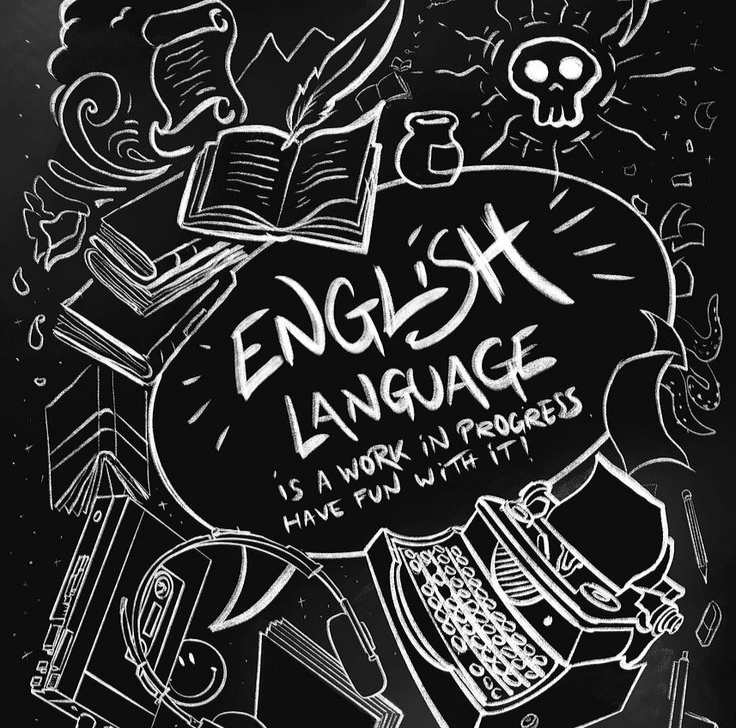 ENGLiSH
LANGUAGE
iS A WORK iN PROGRESS.
HAVE FUN WiTH iT!